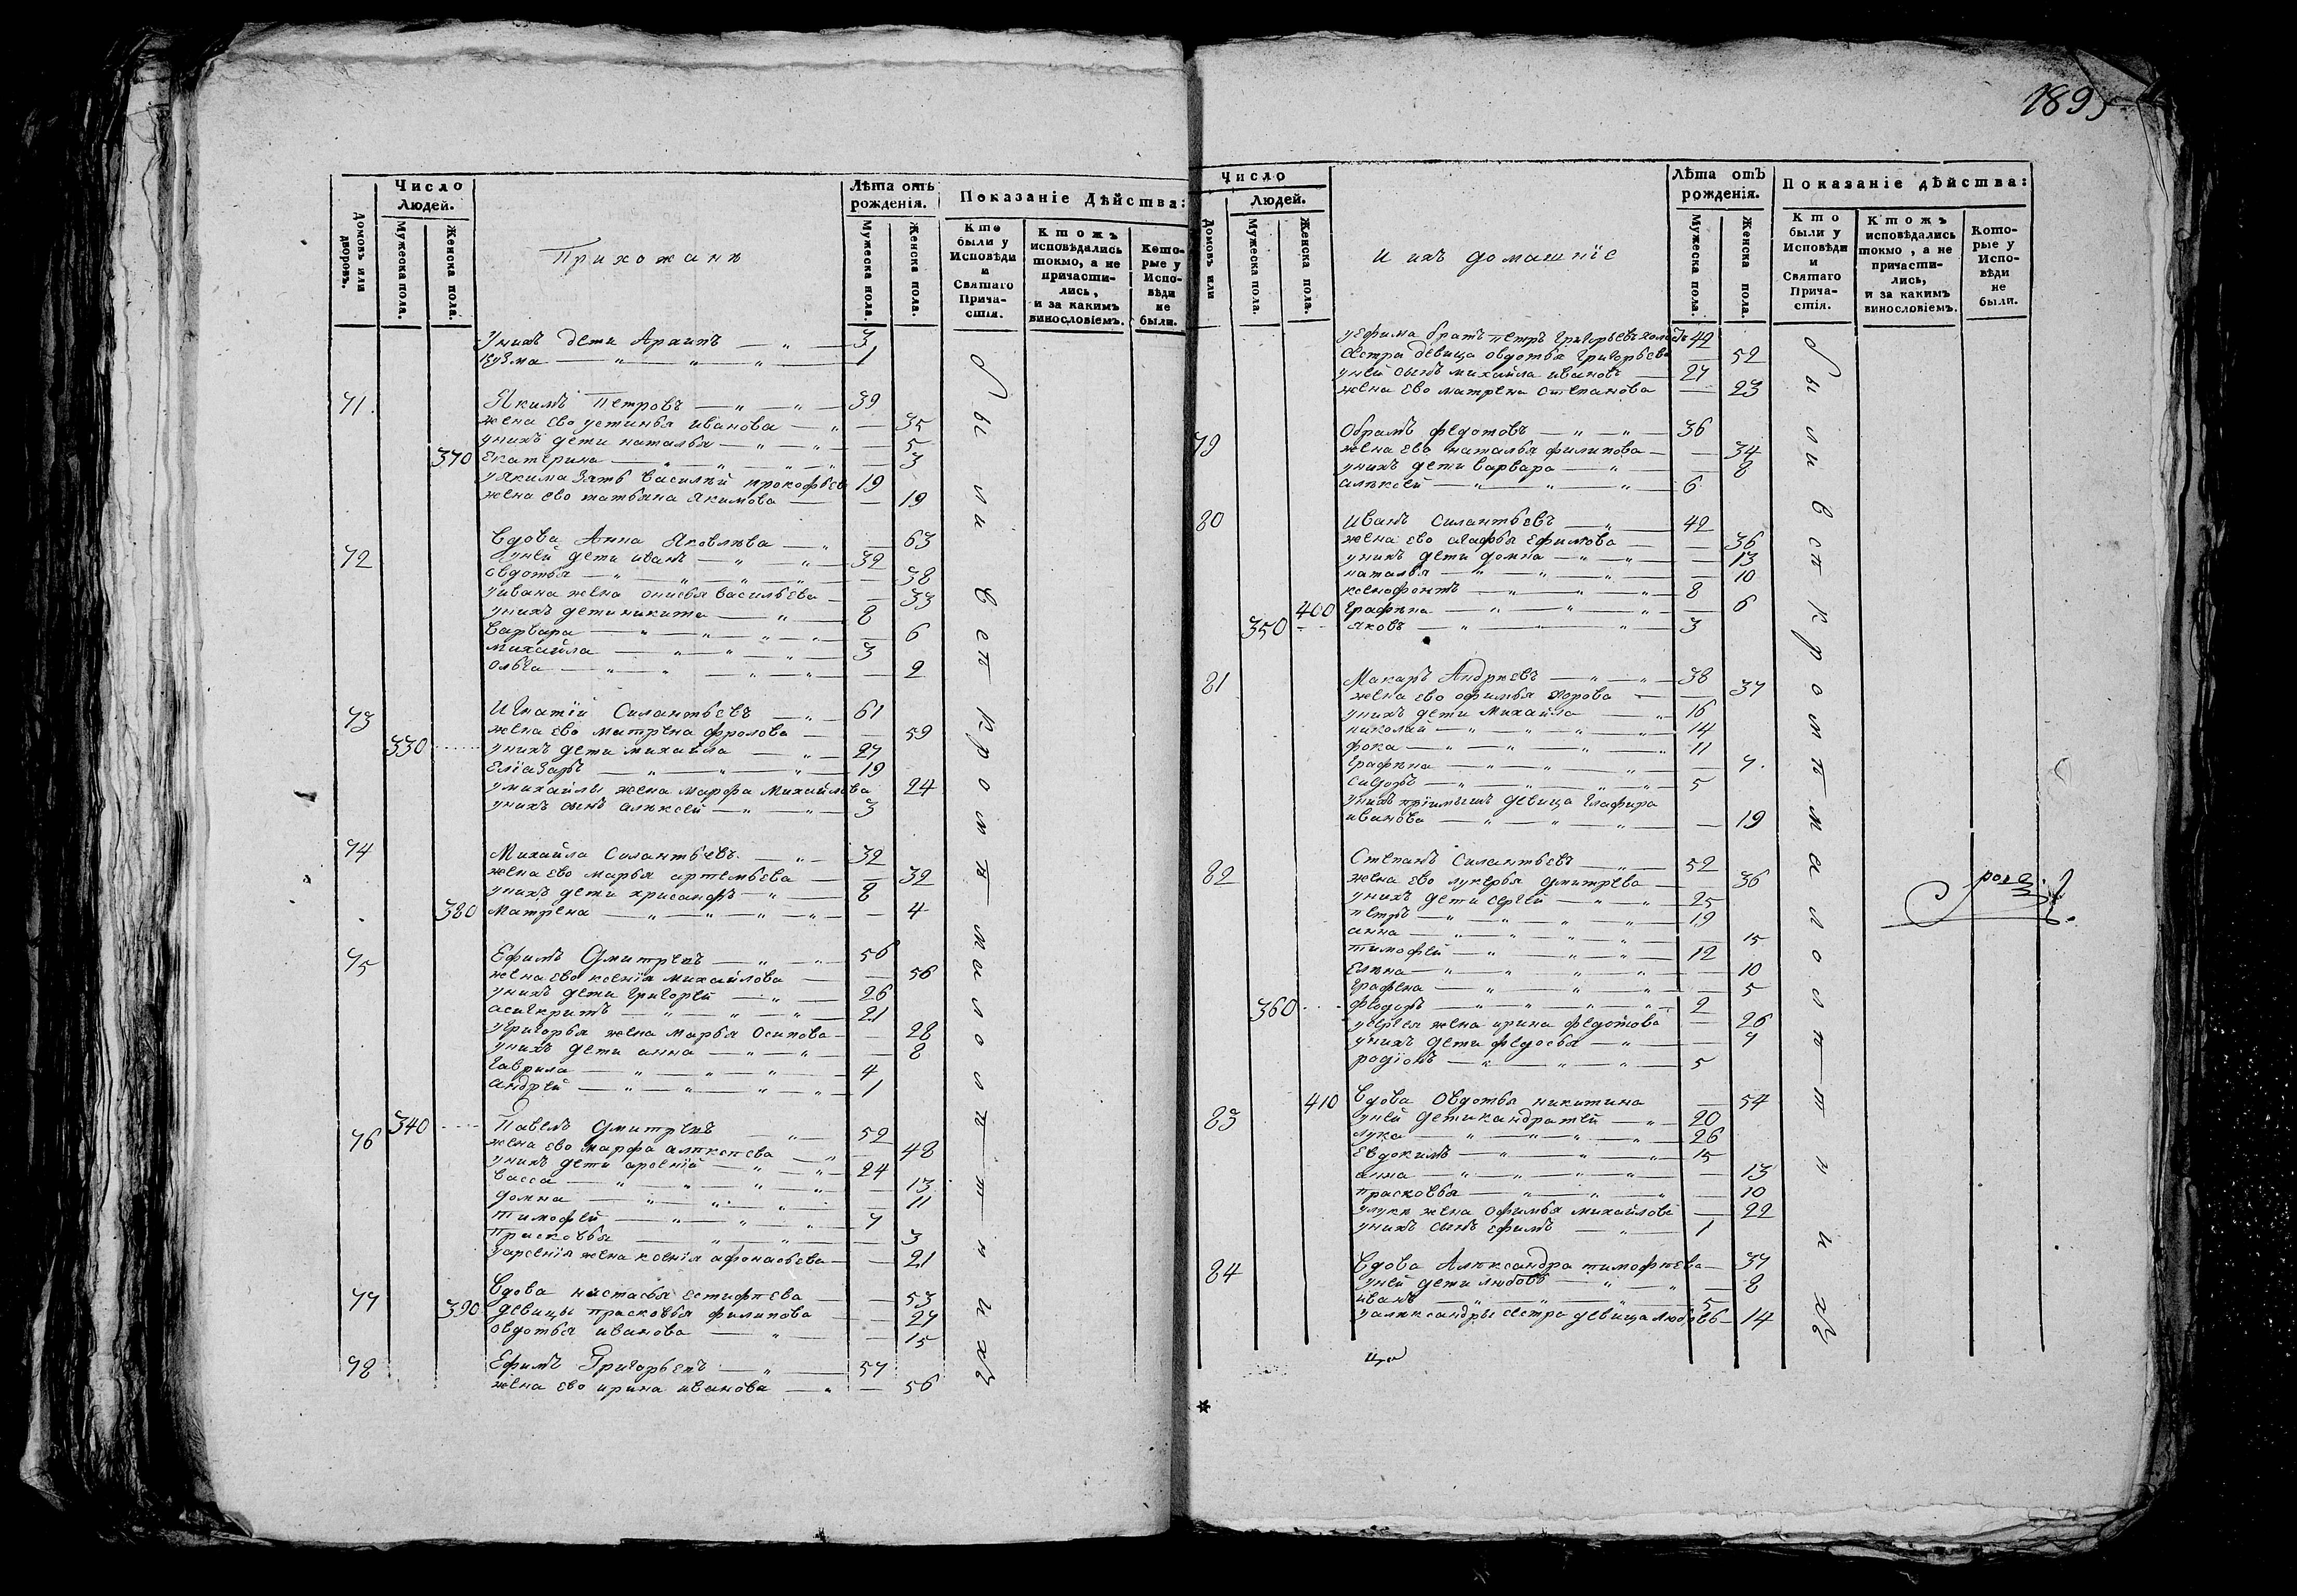 1895
Число
Людей.
Домовъ или дворовъ.
Мужеска пола.
Женска пола.
Прихожанѣ
Лѣта отъ рожденія.
Мужеска пола.
Женска пола.
Показаніе Дѣйства:
Кто были у Исповѣди и Святаго Прича-стія.
Ктожъ исповѣдались токмо, а не причасти-лись, и за какимъ винословіемъ.
Кото-рые у Испо-вѣди не были.
унихъ дети Архипъ 3
кузма 1
71. Якимъ Петровъ 39
жена ево устинья иванова 35
унихъ дети наталья 5
370 Екатерина 3
уякима зять василей прокофьев 19
жена ево татьяна якимова 19
Вдова Анна Яковлева 63
72 уней дети иванъ 32
овдотья 38
уивана жена онисья васильева 33
унихъ дети никита 8
варвара 6
михайла 3
ольга 2
73 Игнатій Силантьевъ 61
жена ево матрена фролова 59
330 унихъ дети михайла 27
Еліазаръ 19
умихайлы жена марфа михайлова 24
унихъ сынъ алѣксей 3
74 Михайла Силантьевъ 32
жена ево марья артемьева 32
унихъ дети хрисанфъ 8
380 матрена 4
75 Ефимъ Дмитревъ 56
жена ево ксенія михайлова 56
унихъ дети григорей 26
асигкритъ 21
угригорья жена марья осипова 28
унихъ дети анна 8
гаврила 4
андрей 1
76 340 Павелъ Дмитревъ 52
жена ево марфа алѣксѣева 48
унихъ дети арсеній 24
васса 13
домна 11
тимофей 7
прасковья 3
уарсенія жена ксенія афонасьева 21
77 Вдова настасья естифѣева 53
390 девицы прасковья филипова 27
овдотья иванова 15
78 Ефимъ Григорьевъ 57
жена ево ирина иванова 56
были вс
Число
Людей.
Домовъ или
Мужеска пола.
Женска пола.
и ихъ домашніе
Лѣта отъ рожденія.
Мужеска пола.
Женска пола.
Показаніе дѣйства:
Кто были у Исповѣди и Святаго Прича-стія.
Ктожъ исповѣдались токмо, а не причасти-лись, и за какимъ винословіемъ.
Кото-рые у Испо-вѣди не были.
уефима братъ петръ григорьевъ 42
сестра девица овдотья григорьева 52
уней сынъ михайла ивановъ 27
жена ево матрена степанова 23
79 Обрамъ федотовъ 36
жена ево наталья филипова 34
унихъ дети варвара 8
алѣксей 6
80 Иванъ Силантьевъ 42
жена ево агафья ефимова 36
унихъ дети домна 13
наталья 10
ксенофонтъ 8
400 Графена 6
350 яковъ 3
81 Макаръ Андреевъ 38
жена ево офимья 37
унихъ дети михайла 16
николай 14
фока 11
Графена 7
сидоръ 5
унихъ пріимышъ девица глафира
иванова 19
82 Степанъ Силантьевъ 52
жена ево лукерья дмитрева 36
унихъ дети сергей 25
петръ 19
анна 15
тимофей 12
елена 10
графена 5
360 федоръ 2
усергея жена ирина федотова 26
унихъ дети федосья 7
родіонъ 5
410 Вдова Овдотья никитина 54
83 уней дети кандратей 20
лука 26
евдокимъ 15
анна 13
прасковья 10
улуки жена офимья михайлова 22
унихъ сынъ ефимъ 1
84 Вдова Алѣксандра тимофѣева 37
уней дети любовь 8
иванъ 5
уалѣксандры сестра девица любовь 14